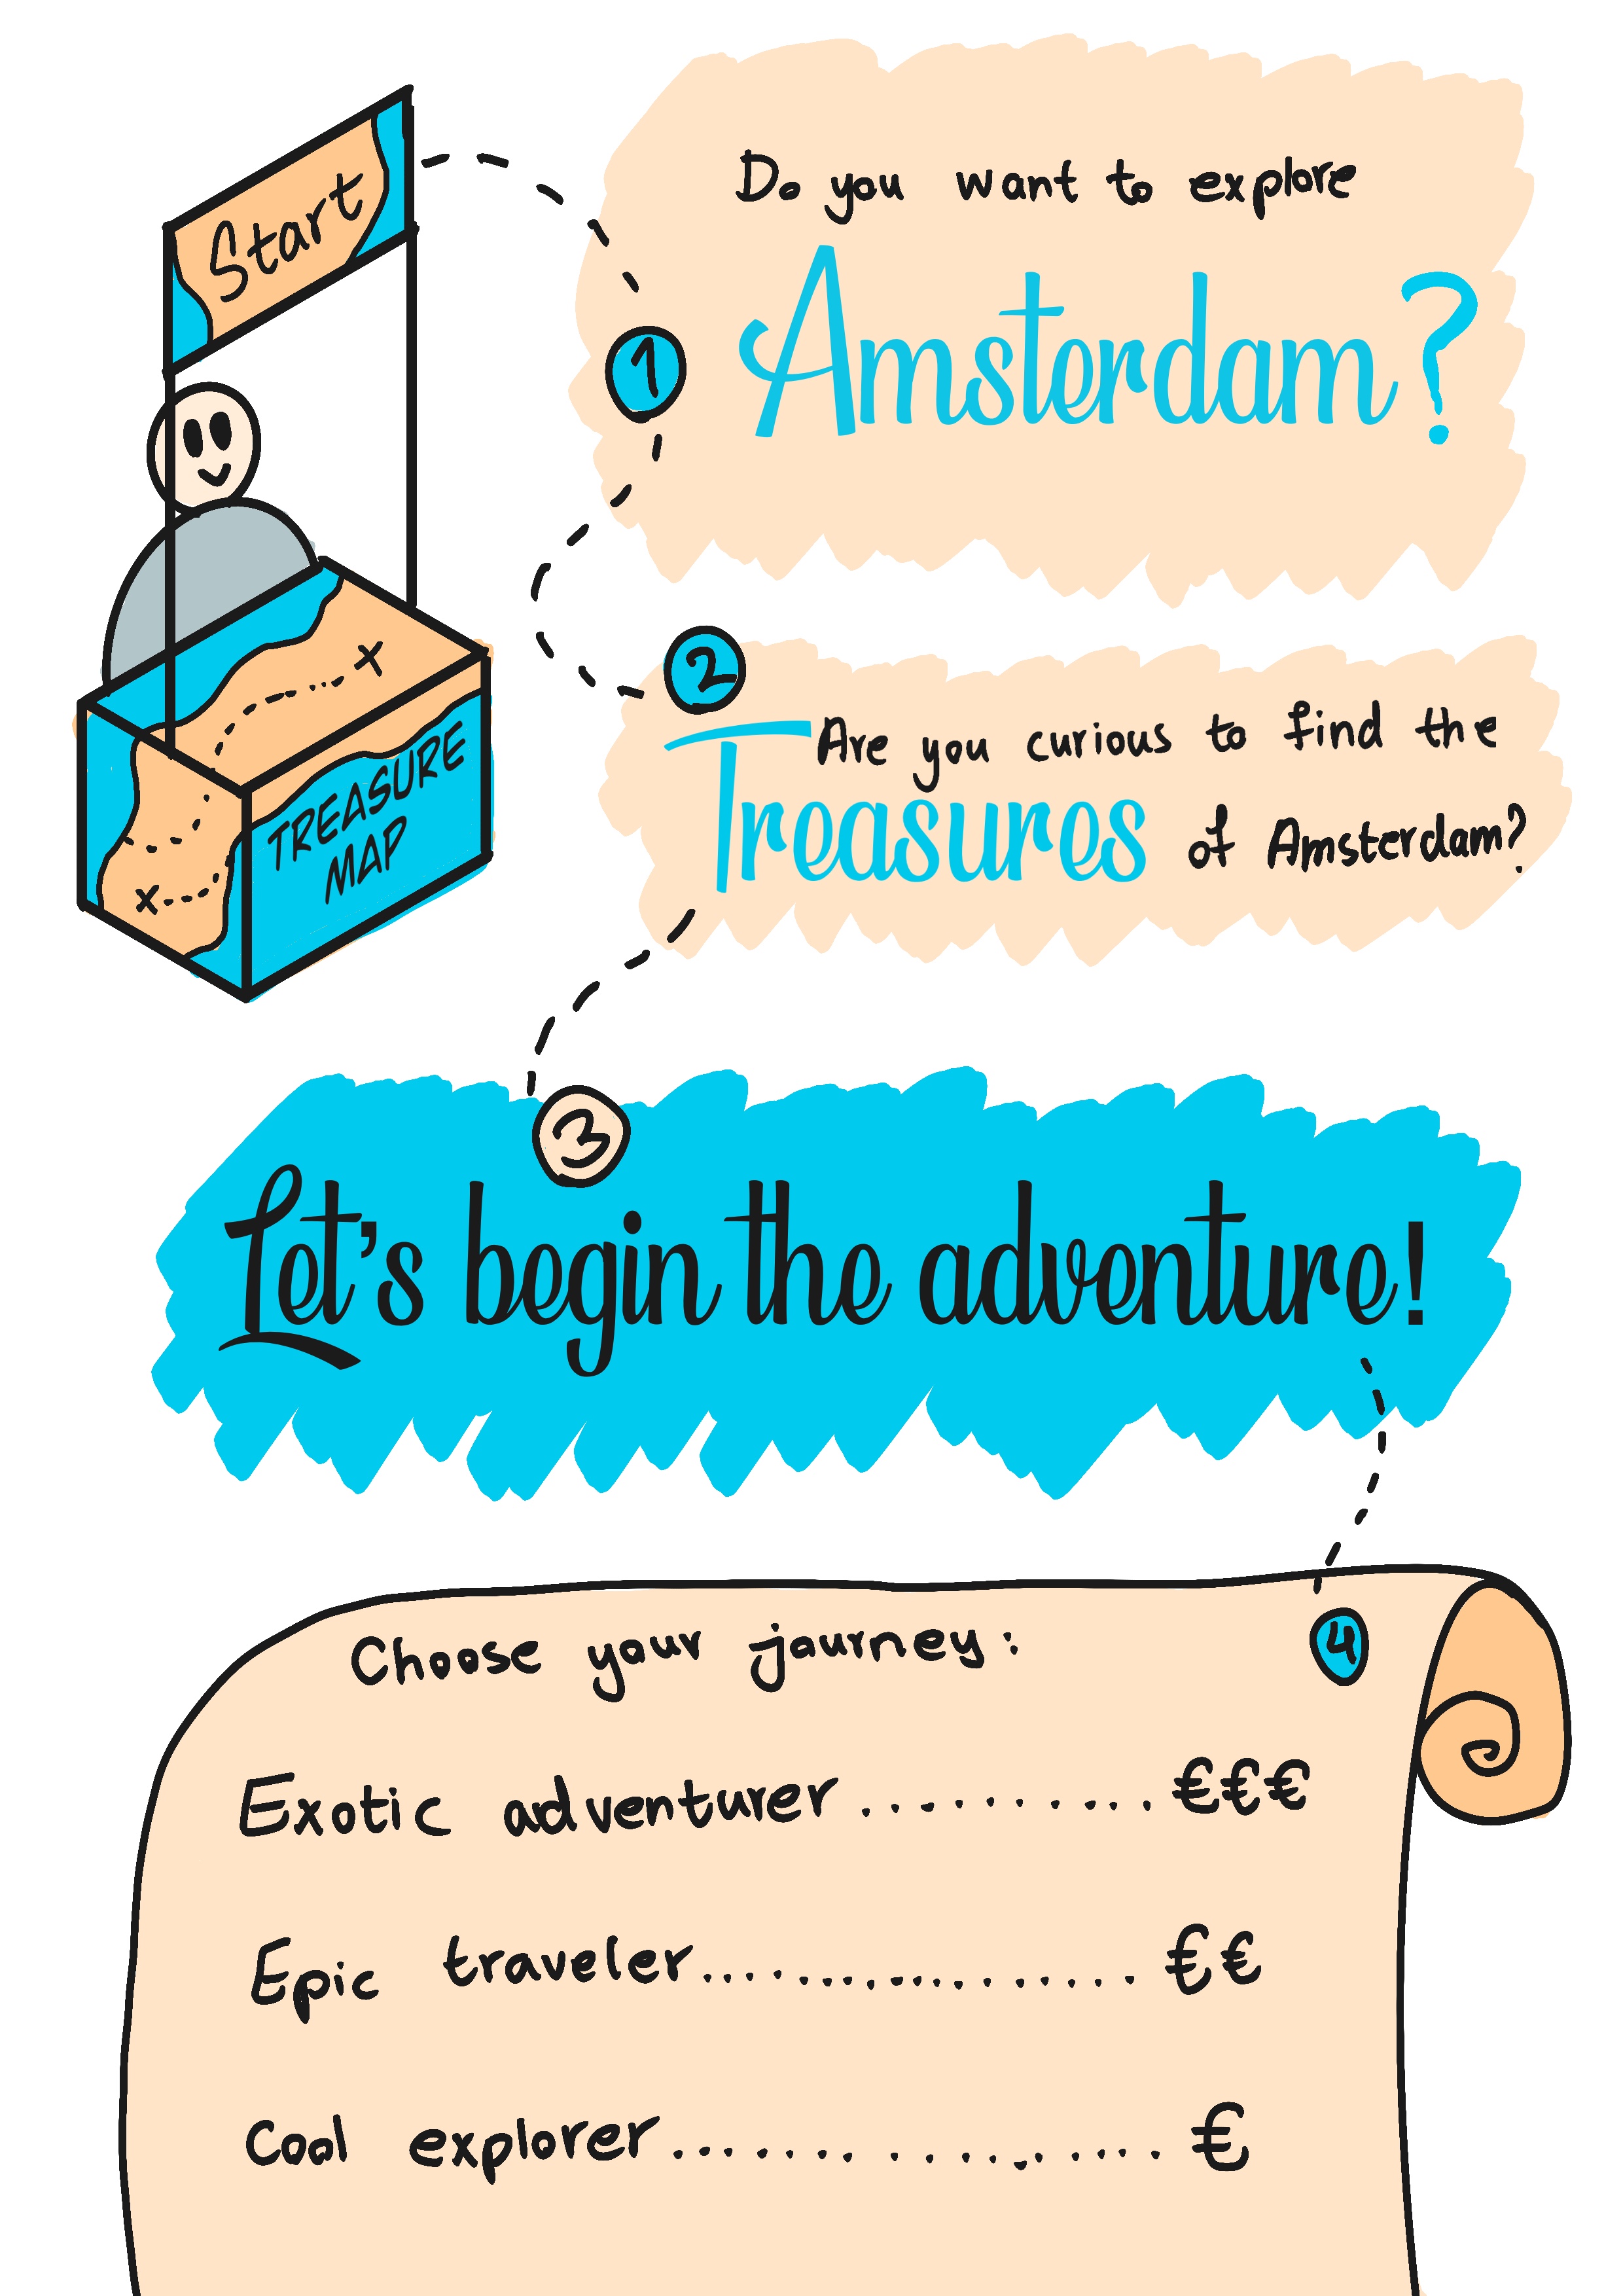 Start
TREASURE
MAP
1
Do you want to explore
Amsterdam?
2
Are you curious to find the
Treasures of Amsterdam?
3
Let's begin the adventure!
4
Choose your journey:
Exotic adventurer .......... €€€
Epic traveler................ €€
Cool explorer................ €